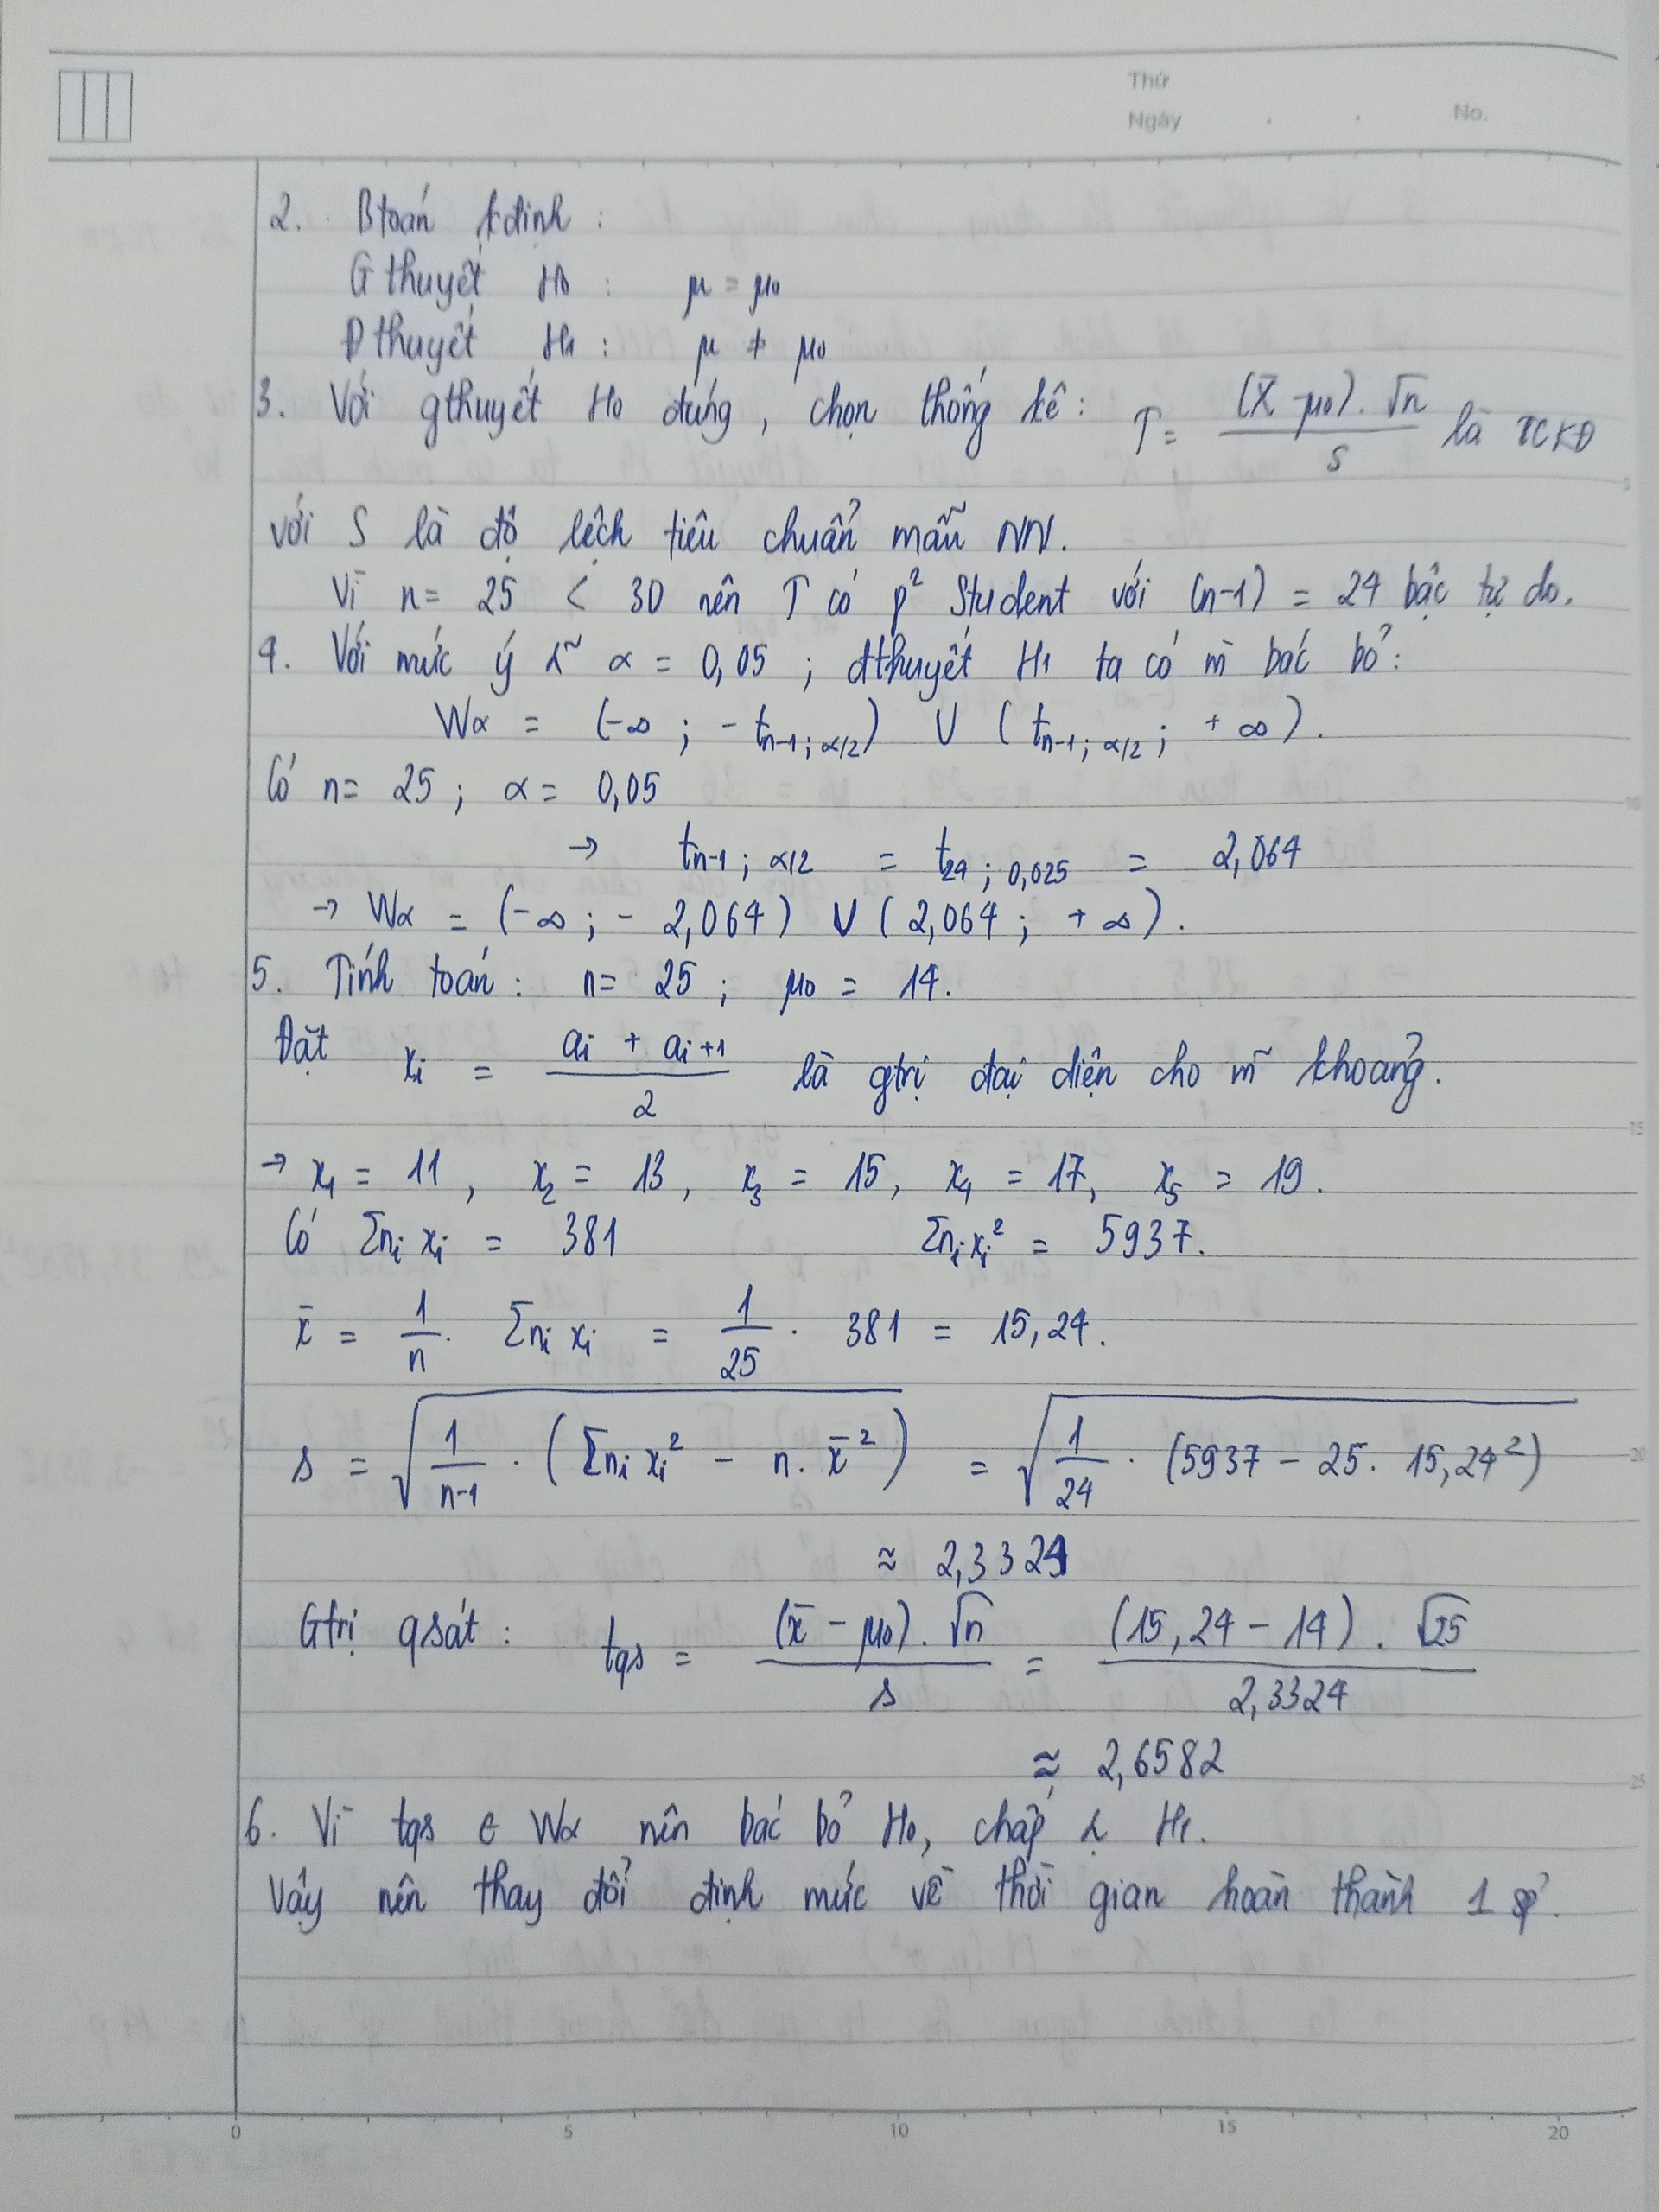 Thứ
Ngày . . No.
2. Btoán kđịnh :
Gthuyết H0 : μ = μ0
Đthuyết H1 : μ ≠ μ0
3. Với gthuyết H0 đúng, chọn thống kê : T = (X̄ - μ0). √n / S là TCKĐ
với S là độ lệch tiêu chuẩn mẫu NN.
Vì n = 25 < 30 nên T có p² Student với (n-1) = 24 bậc tự do.
4. Với mức ý α = 0,05 ; đthuyết H1 ta có m bác bỏ :
Wα = (-∞ ; - tn-1; α/2) ∪ (tn-1; α/2 ; +∞).
Có n = 25 ; α = 0,05
→ tn-1; α/2 = t24; 0,025 = 2,064
→ Wα = (-∞ ; - 2,064) ∪ (2,064 ; +∞).
5. Tính toán : n = 25 ; μ0 = 14.
Đặt xi = (ai + ai+1) / 2 là gtrị đại diện cho m khoảng.
→ x1 = 11, x2 = 13, x3 = 15, x4 = 17, x5 = 19.
Có Σni xi = 381 Σni xi² = 5937.
x̄ = 1/n . Σni xi = 1/25 . 381 = 15,24.
s = √(1/(n-1) . (Σni xi² - n. x̄²)) = √(1/24 . (5937 - 25. 15,24²))
≈ 2,3324
Gtrị qsát : tqs = (x̄ - μ0). √n / s = (15,24 - 14). √25 / 2,3324
≈ 2,6582
6. Vì tqs ∈ Wα nên bác bỏ H0, chấp H1.
Vậy nên thay đổi định mức về thời gian hoàn thành 1 sp.
0 5 10 15 20